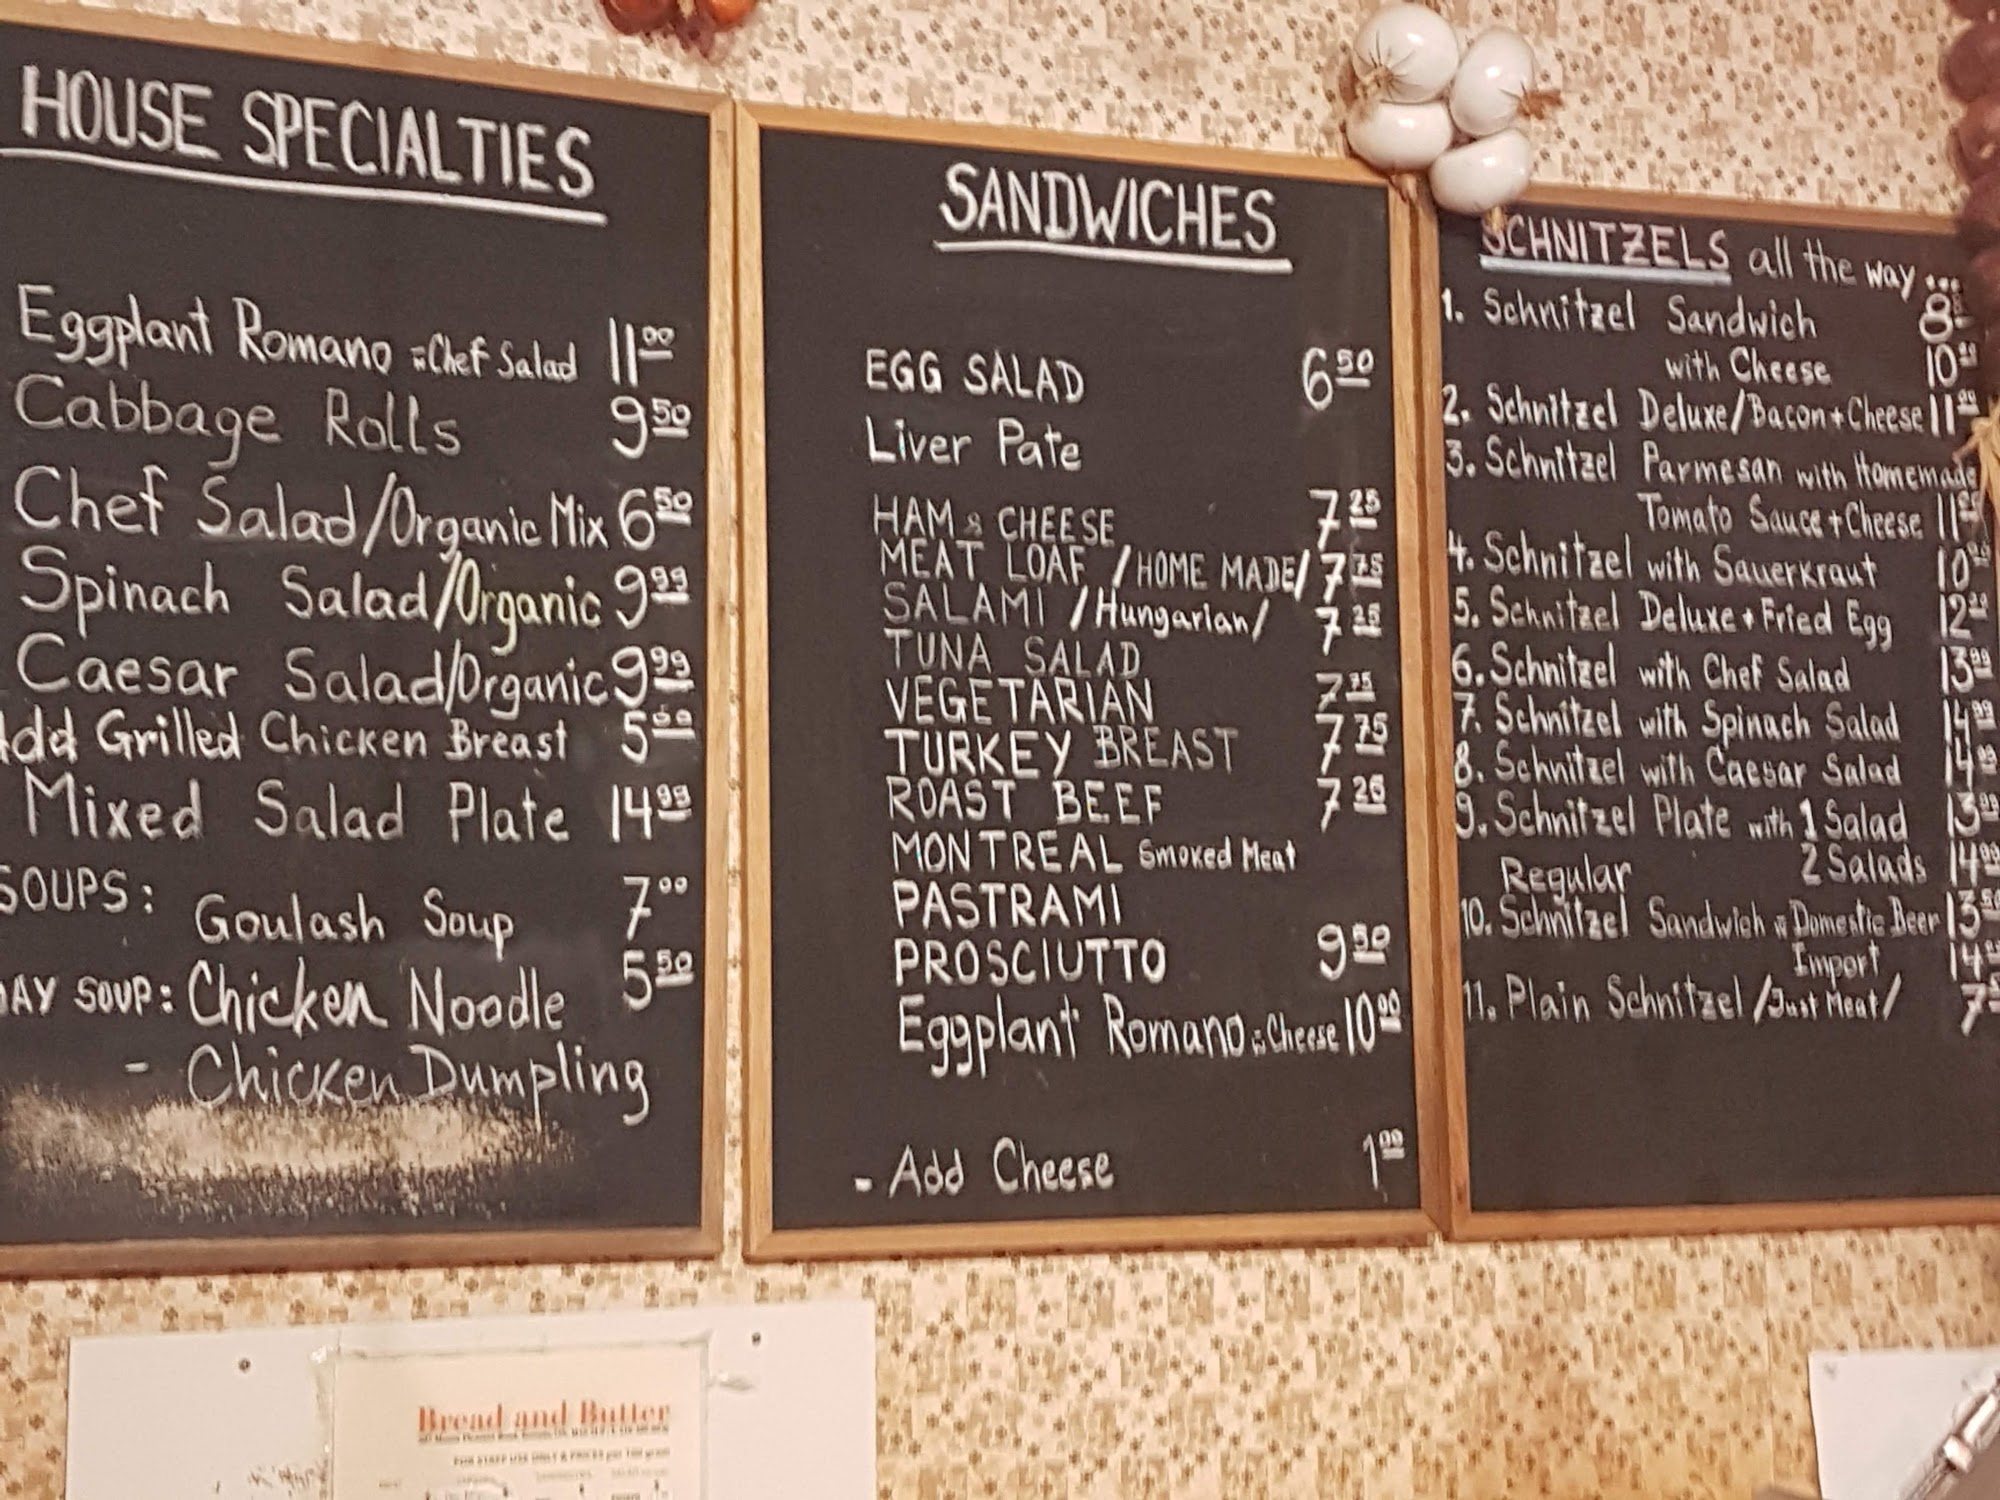 HOUSE SPECIALTIES
Eggplant Romano w Chef Salad 11.00
Cabbage Rolls 9.50
Chef Salad/Organic Mix 6.50
Spinach Salad/Organic 9.99
Caesar Salad/Organic 9.99
Add Grilled Chicken Breast 5.00
Mixed Salad Plate 14.99
SOUPS:
Goulash Soup 7.00
DAY SOUP: Chicken Noodle 5.50
- Chicken Dumpling
SANDWICHES
EGG SALAD 6.50
Liver Pate
HAM & CHEESE 7.25
MEAT LOAF /HOME MADE/ 7.75
SALAMI /Hungarian/ 7.25
TUNA SALAD
VEGETARIAN 7.75
TURKEY BREAST 7.75
ROAST BEEF 7.25
MONTREAL Smoked Meat
PASTRAMI
PROSCIUTTO 9.50
Eggplant Romano w Cheese 10.00
- Add Cheese 1.00
SCHNITZELS all the way...
1. Schnitzel Sandwich 8
with Cheese 10
2. Schnitzel Deluxe/Bacon+Cheese 11
3. Schnitzel Parmesan with Homemade
Tomato Sauce+Cheese 11
4. Schnitzel with Sauerkraut 10
5. Schnitzel Deluxe+Fried Egg 12
6. Schnitzel with Chef Salad 13.99
7. Schnitzel with Spinach Salad 14.99
8. Schnitzel with Caesar Salad 14.99
9. Schnitzel Plate with 1 Salad 13.99
Regular 2 Salads 14.99
10. Schnitzel Sandwich w Domestic Beer 13.50
Import 14
11. Plain Schnitzel /Just Meat/ 7
Bread and Butter